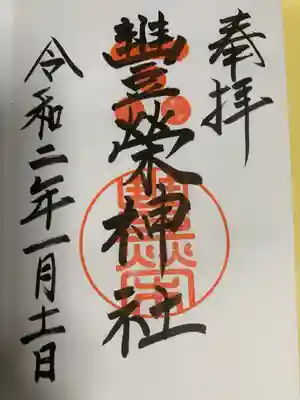 奉拝
豐榮神社
令和二年一月十一日